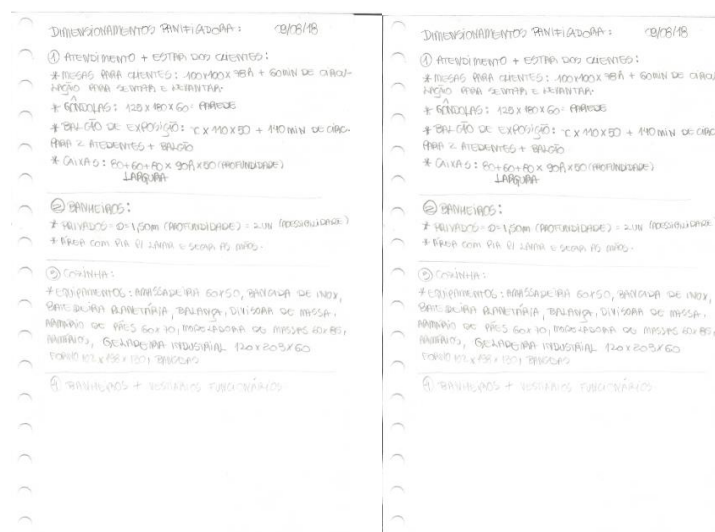 DIMENSIONAMENTOS PANIFICADORA: 09/08/18
① ATENDIMENTO + ESTAR DOS CLIENTES:
* MESAS PARA CLIENTES: 100x100x78A + 60MIN DE CIRCU-
LAÇÃO PARA SENTAR E LEVANTAR.
* GÔNDOLAS: 125x180x60: PAREDE
* BALCÃO DE EXPOSIÇÃO: C x 110 x 50 + 140 MIN DE CIRC.
PARA 2 ATEDENTES + BALCÃO
* CAIXAS: 80+60+80 x 90A x 50 (PROFUNDIDADE)
LARGURA
② BANHEIROS:
* PRIVADOS = D=1,50m (PROFUNDIDADE) = 2UN
* ÁREA COM PIA P/ LAVAR E SECAR AS MÃOS.
③ COZINHA:
* EQUIPAMENTOS: AMASSADEIRA 60x50, BANCADA DE INOX,
BATEDEIRA PLANETÁRIA, BALANÇA, DIVISORA DE MASSA,
ARMÁRIO DE PÃES 60x70, MODELADORA DE MASSAS 60x85,
ARMÁRIOS, GELADEIRA INDUSTRIAL 120x209x60
FORNO
④ BANHEIROS + VESTIÁRIOS FUNCIONÁRIOS
DIMENSIONAMENTOS PANIFICADORA: 09/08/18
① ATENDIMENTO + ESTAR DOS CLIENTES:
* MESAS PARA CLIENTES: 100x100x78A + 60MIN DE CIRCU
LAÇÃO PARA SENTAR E LEVANTAR.
* GÔNDOLAS: 125x180x60: PAREDE
* BALCÃO DE EXPOSIÇÃO: C x 110 x 50 + 140 MIN DE CIRC
PARA 2 ATEDENTES + BALCÃO
* CAIXAS: 80+60+80 x 90A x 50 (PROFUNDIDADE)
LARGURA
② BANHEIROS:
* PRIVADOS = D=1,50m (PROFUNDIDADE) = 2UN
* ÁREA COM PIA P/ LAVAR E SECAR AS MÃOS.
③ COZINHA:
* EQUIPAMENTOS: AMASSADEIRA 60x50, BANCADA DE INOX,
BATEDEIRA PLANETÁRIA, BALANÇA, DIVISORA DE MASSA,
ARMÁRIO DE PÃES 60x70, MODELADORA DE MASSAS 60x85,
ARMÁRIOS, GELADEIRA INDUSTRIAL 120x209x60
FORNO
④ BANHEIROS + VESTIÁRIOS FUNCIONÁRIOS